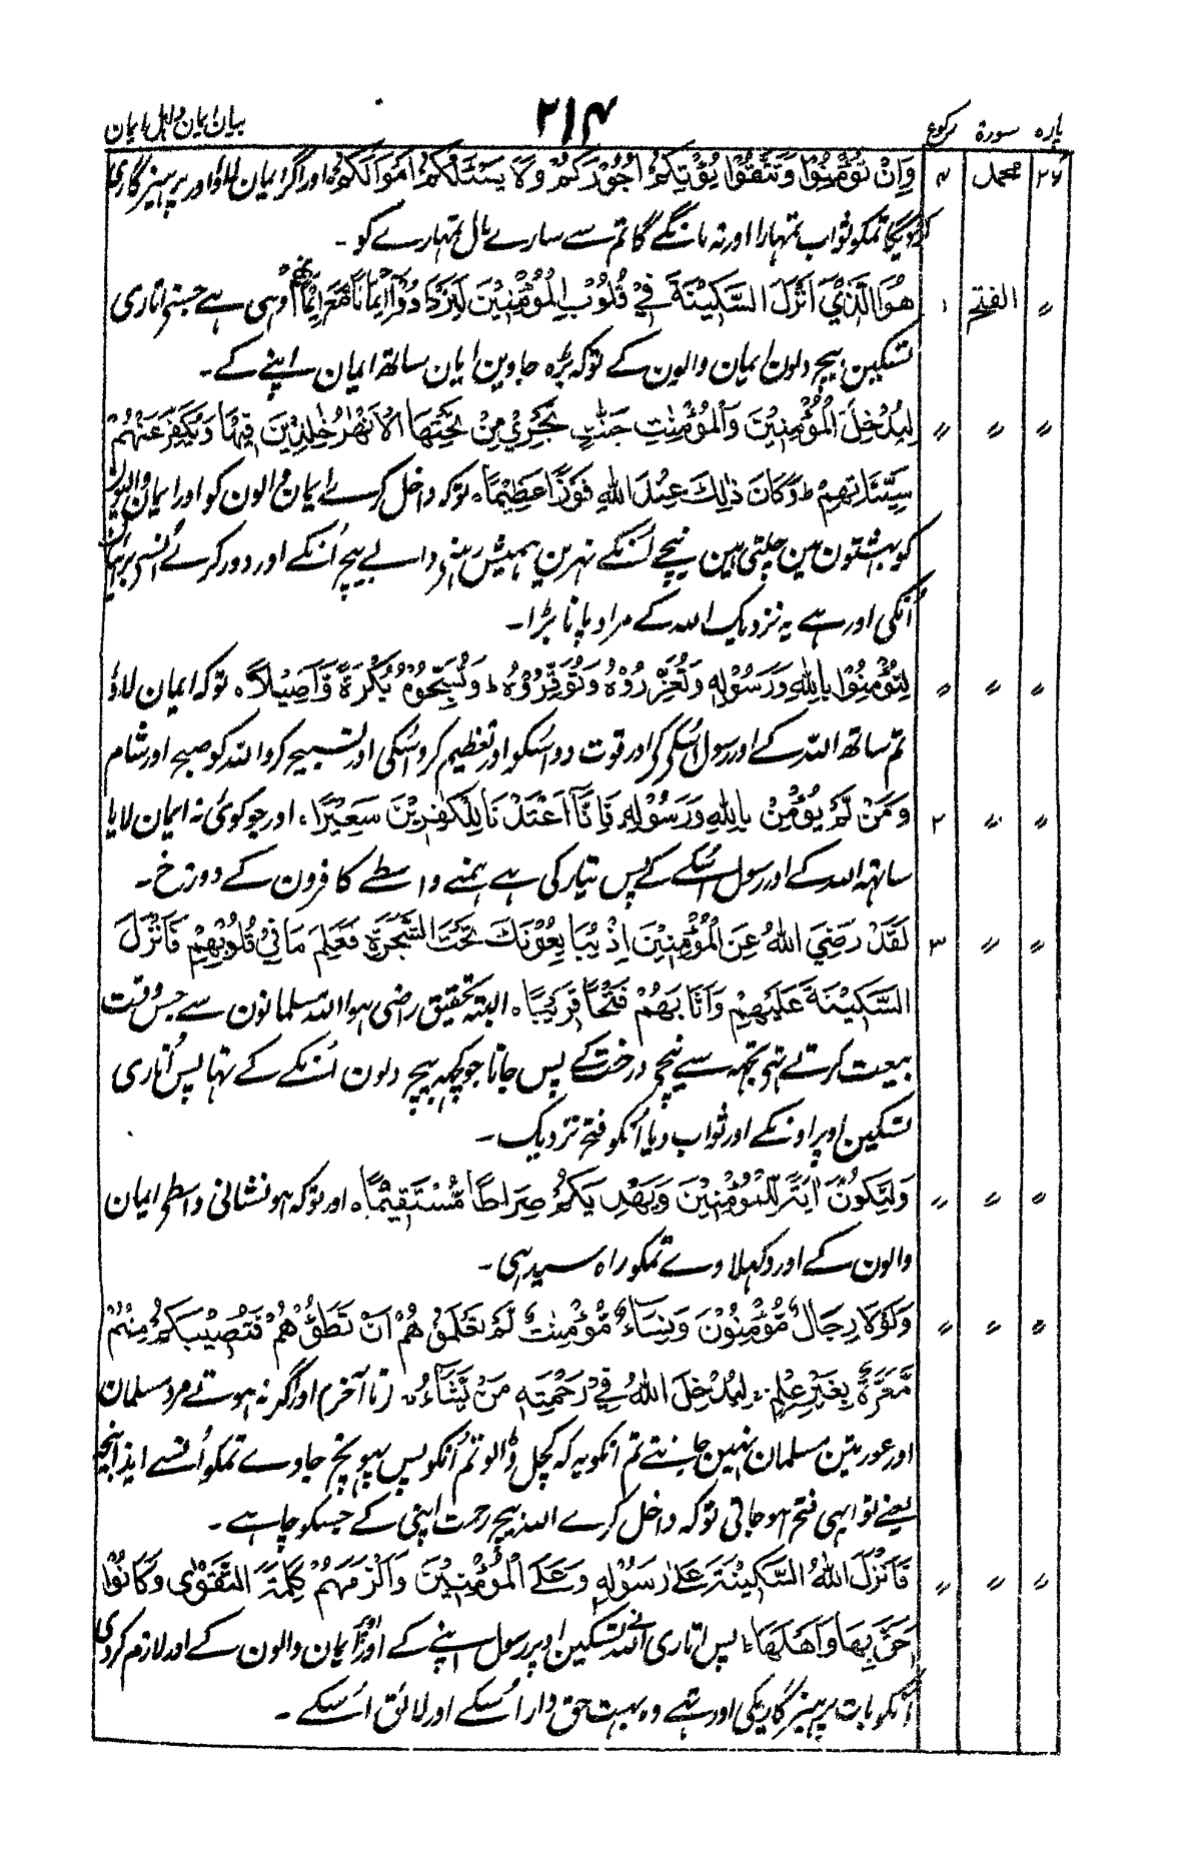 پارہ سورۃ رکوع ۲۱۴ بیان ایمان و اہل ایمان
۲۶ محمد ۴ وَاِنْ تُؤْمِنُوْا وَتَتَّقُوْا يُؤْتِكُمْ اُجُوْرَكُمْ وَلَا يَسْئَلْكُمْ اَمْوَالَكُمْ ہ اور اگر ایمان لاؤ اور پرہیزگاری
کرو دیگا تمکو ثواب تمہارا اور نہ مانگے گا تم سے سارے مال تمہارے کو ۔
〃 الفتح ۱ هُوَ الَّذِيْ اَنْزَلَ السَّكِيْنَةَ فِيْ قُلُوْبِ الْمُؤْمِنِيْنَ لِيَزْدَادُوْا اِيْمَانًا مَّعَ اِيْمَانِهِمْ وہی ہے جسنے اتاری
تسکین بیچ دلون ایمان والون کے توکہ بڑہ جاوین ایمان ساتھ ایمان اپنے کے ۔
〃 〃 〃 لِيُدْخِلَ الْمُؤْمِنِيْنَ وَالْمُؤْمِنٰتِ جَنّٰتٍ تَجْرِيْ مِنْ تَحْتِهَا الْاَنْهٰرُ خٰلِدِيْنَ فِيْهَا وَيُكَفِّرَ عَنْهُمْ
سَيِّئَاتِهِمْ ط وَكَانَ ذٰلِكَ عِنْدَ اللّٰهِ فَوْزًا عَظِيْمًا ہ توکہ داخل کرے ایمان والون کو اور ایمان والیون
کو بہشتون مین چلتی ہین نیچے اُنکے نہرین ہمیش رہنے والے بیچ اُنکے اور دور کرے اُنسے برائیان
اُنکی اور ہے یہ نزدیک اللہ کے مراد پانا بڑا ۔
〃 〃 〃 لِتُؤْمِنُوْا بِاللّٰهِ وَرَسُوْلِهٖ وَتُعَزِّرُوْهُ وَتُوَقِّرُوْهُ ط وَتُسَبِّحُوْهُ بُكْرَةً وَّاَصِيْلًا ہ توکہ ایمان لاؤ
تم ساتھ اللہ کے اور رسول اُسکے کے اور قوت دو اُسکو اور تعظیم کرو اُسکی اور تسبیح کرو اللہ کو صبح اور شام
〃 〃 ۲ وَمَنْ لَّمْ يُؤْمِنْ بِاللّٰهِ وَرَسُوْلِهٖ فَاِنَّا اَعْتَدْنَا لِلْكٰفِرِيْنَ سَعِيْرًا ہ اور جو کوئی نہ ایمان لایا
ساتھ اللہ کے اور رسول اُسکے کے پس تیار کی ہے ہمنے واسطے کافرون کے دوزخ ۔
〃 〃 ۳ لَقَدْ رَضِيَ اللّٰهُ عَنِ الْمُؤْمِنِيْنَ اِذْ يُبَايِعُوْنَكَ تَحْتَ الشَّجَرَةِ فَعَلِمَ مَا فِيْ قُلُوْبِهِمْ فَاَنْزَلَ
السَّكِيْنَةَ عَلَيْهِمْ وَاَثَابَهُمْ فَتْحًا قَرِيْبًا ہ البتہ تحقیق راضی ہوا اللہ مسلمانون سے جس وقت
بیعت کرتے تہے تجہہ سے نیچے درخت کے پس جانا جو کچہہ بیچ دلون اُنکے کے تہا پس اُتاری
تسکین اوپر اونکے اور ثواب دیا اُنکو فتح نزدیک ۔
〃 〃 〃 وَلِتَكُوْنَ اٰيَةً لِّلْمُؤْمِنِيْنَ وَيَهْدِيَكُمْ صِرَاطًا مُّسْتَقِيْمًا ہ اور توکہ ہو نشانی واسطے ایمان
والون کے اور دکہلاوے تمکو راہ سیدہی ۔
〃 〃 〃 وَلَوْلَا رِجَالٌ مُّؤْمِنُوْنَ وَنِسَاءٌ مُّؤْمِنٰتٌ لَّمْ تَعْلَمُوْهُمْ اَنْ تَطَئُوْهُمْ فَتُصِيْبَكُمْ مِنْهُمْ
مَّعَرَّةٌ بِغَيْرِ عِلْمٍ لِيُدْخِلَ اللّٰهُ فِيْ رَحْمَتِهٖ مَنْ يَّشَاءُ تا آخر اور اگر نہ ہوتے مرد مسلمان
اور عورتین مسلمان نہین جانتے تم انکو یہ کہ کچل ڈالو تم اُنکو پس پہونچ جاوے تمکو اُنسے ایذا
یعنے تو ابہی فتح ہو جاتی توکہ داخل کرے اللہ بیچ رحمت اپنی کے جسکو چاہے ۔
〃 〃 〃 فَاَنْزَلَ اللّٰهُ السَّكِيْنَةَ عَلٰى رَسُوْلِهٖ وَعَلَى الْمُؤْمِنِيْنَ وَاَلْزَمَهُمْ كَلِمَةَ التَّقْوٰى وَكَانُوْا
اَحَقَّ بِهَا وَاَهْلَهَا پس اتاری اللہ نے تسکین اوپر رسول اپنے کے اور اوپر ایمان والون کے اور لازم کر دی
اُنکو بات پرہیزگاریکی اور تہے وہ بہت حقدار اُسکے اور لائق اُسکے ۔